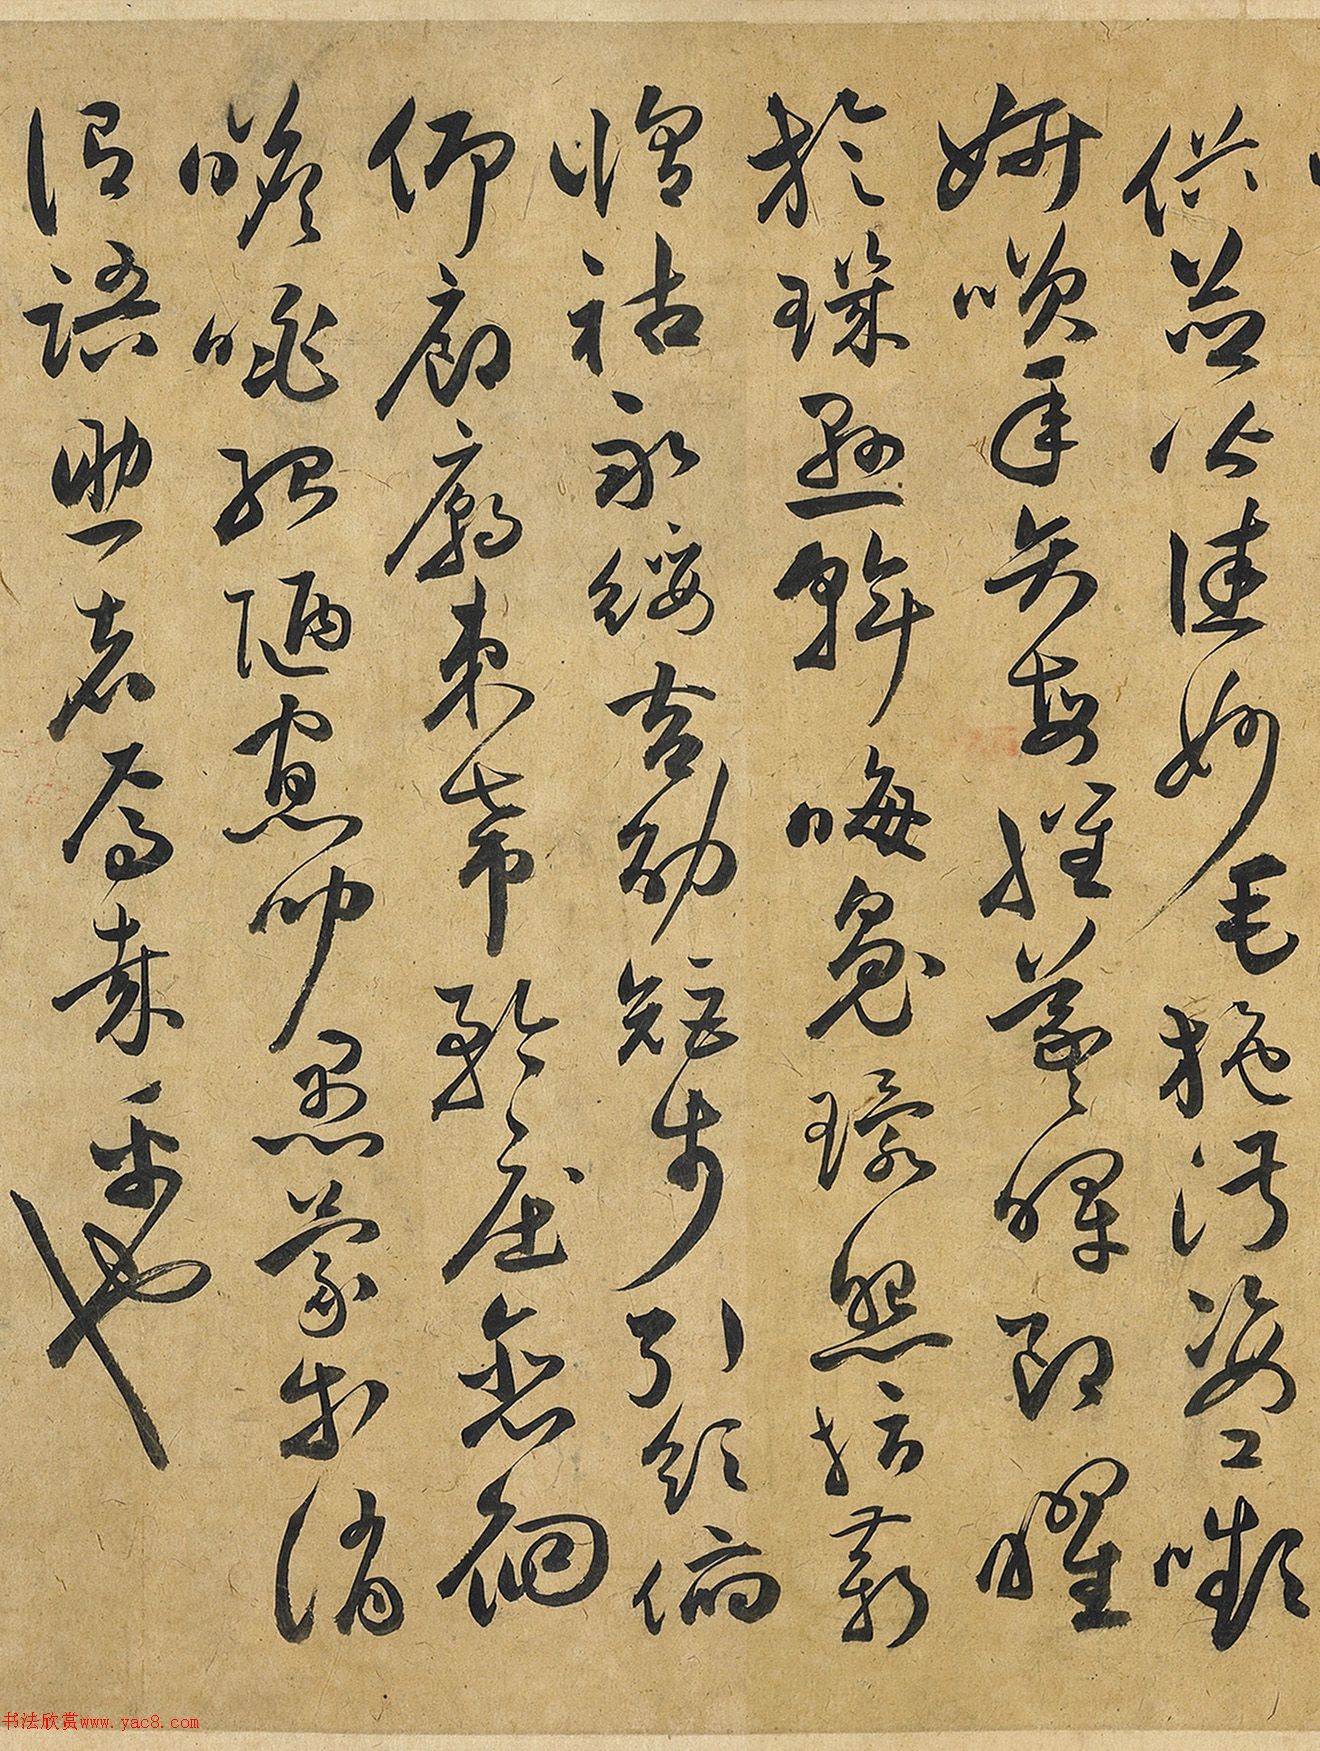 俗並皆佳妙毛施淑姿工嚬
妍咲年矢每催羲暉朗曜
旋璣懸斡晦魄環照指薪
脩祜永綏吉劭矩步引領俯
仰廊廟束帶矜莊徘徊
瞻眺孤陋寡聞愚蒙等誚
謂語助者焉哉乎也
书法欣赏www.yac8.com